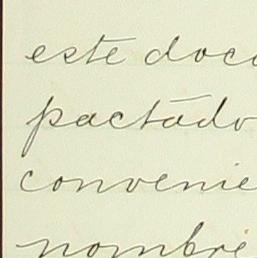 este docu
pactado
convenie
nombre